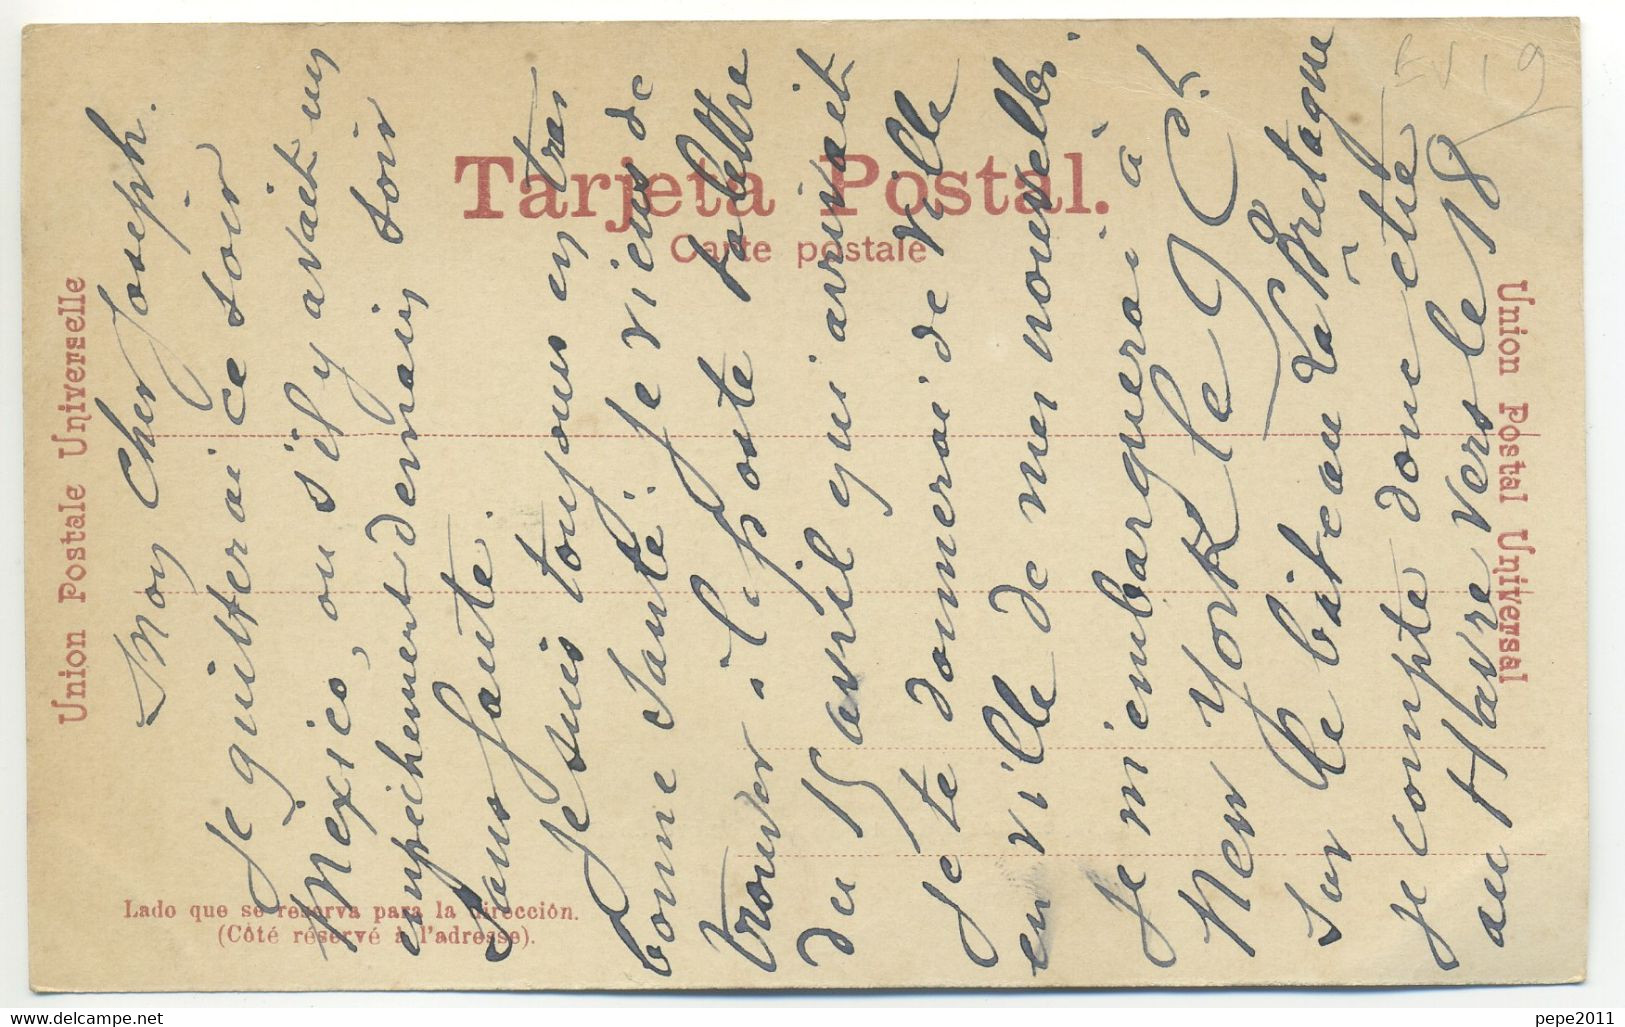 Tarjeta Postal.
Carte postale
Union Postale Universelle
Union Postal Universal
Lado que se reserva para la dirección.
(Côté réservé à l'adresse).
Mon Cher Joseph.
Je quitterai ce soir
Mexico, ou s'il y avait un
empêchement demain soir
sans faute.
Je suis toujours en très
bonne santé. Je viens de
trouver à la poste ta lettre
du 15 avril qui arrivait
Je te donnerai de ville
en ville de mes nouvelles
Je m'embarquerai à
New York le 9 Ct
sur le bateau La Bretagne
Je compte donc être
au Havre vers le 18
delcampe.net
pepe2011